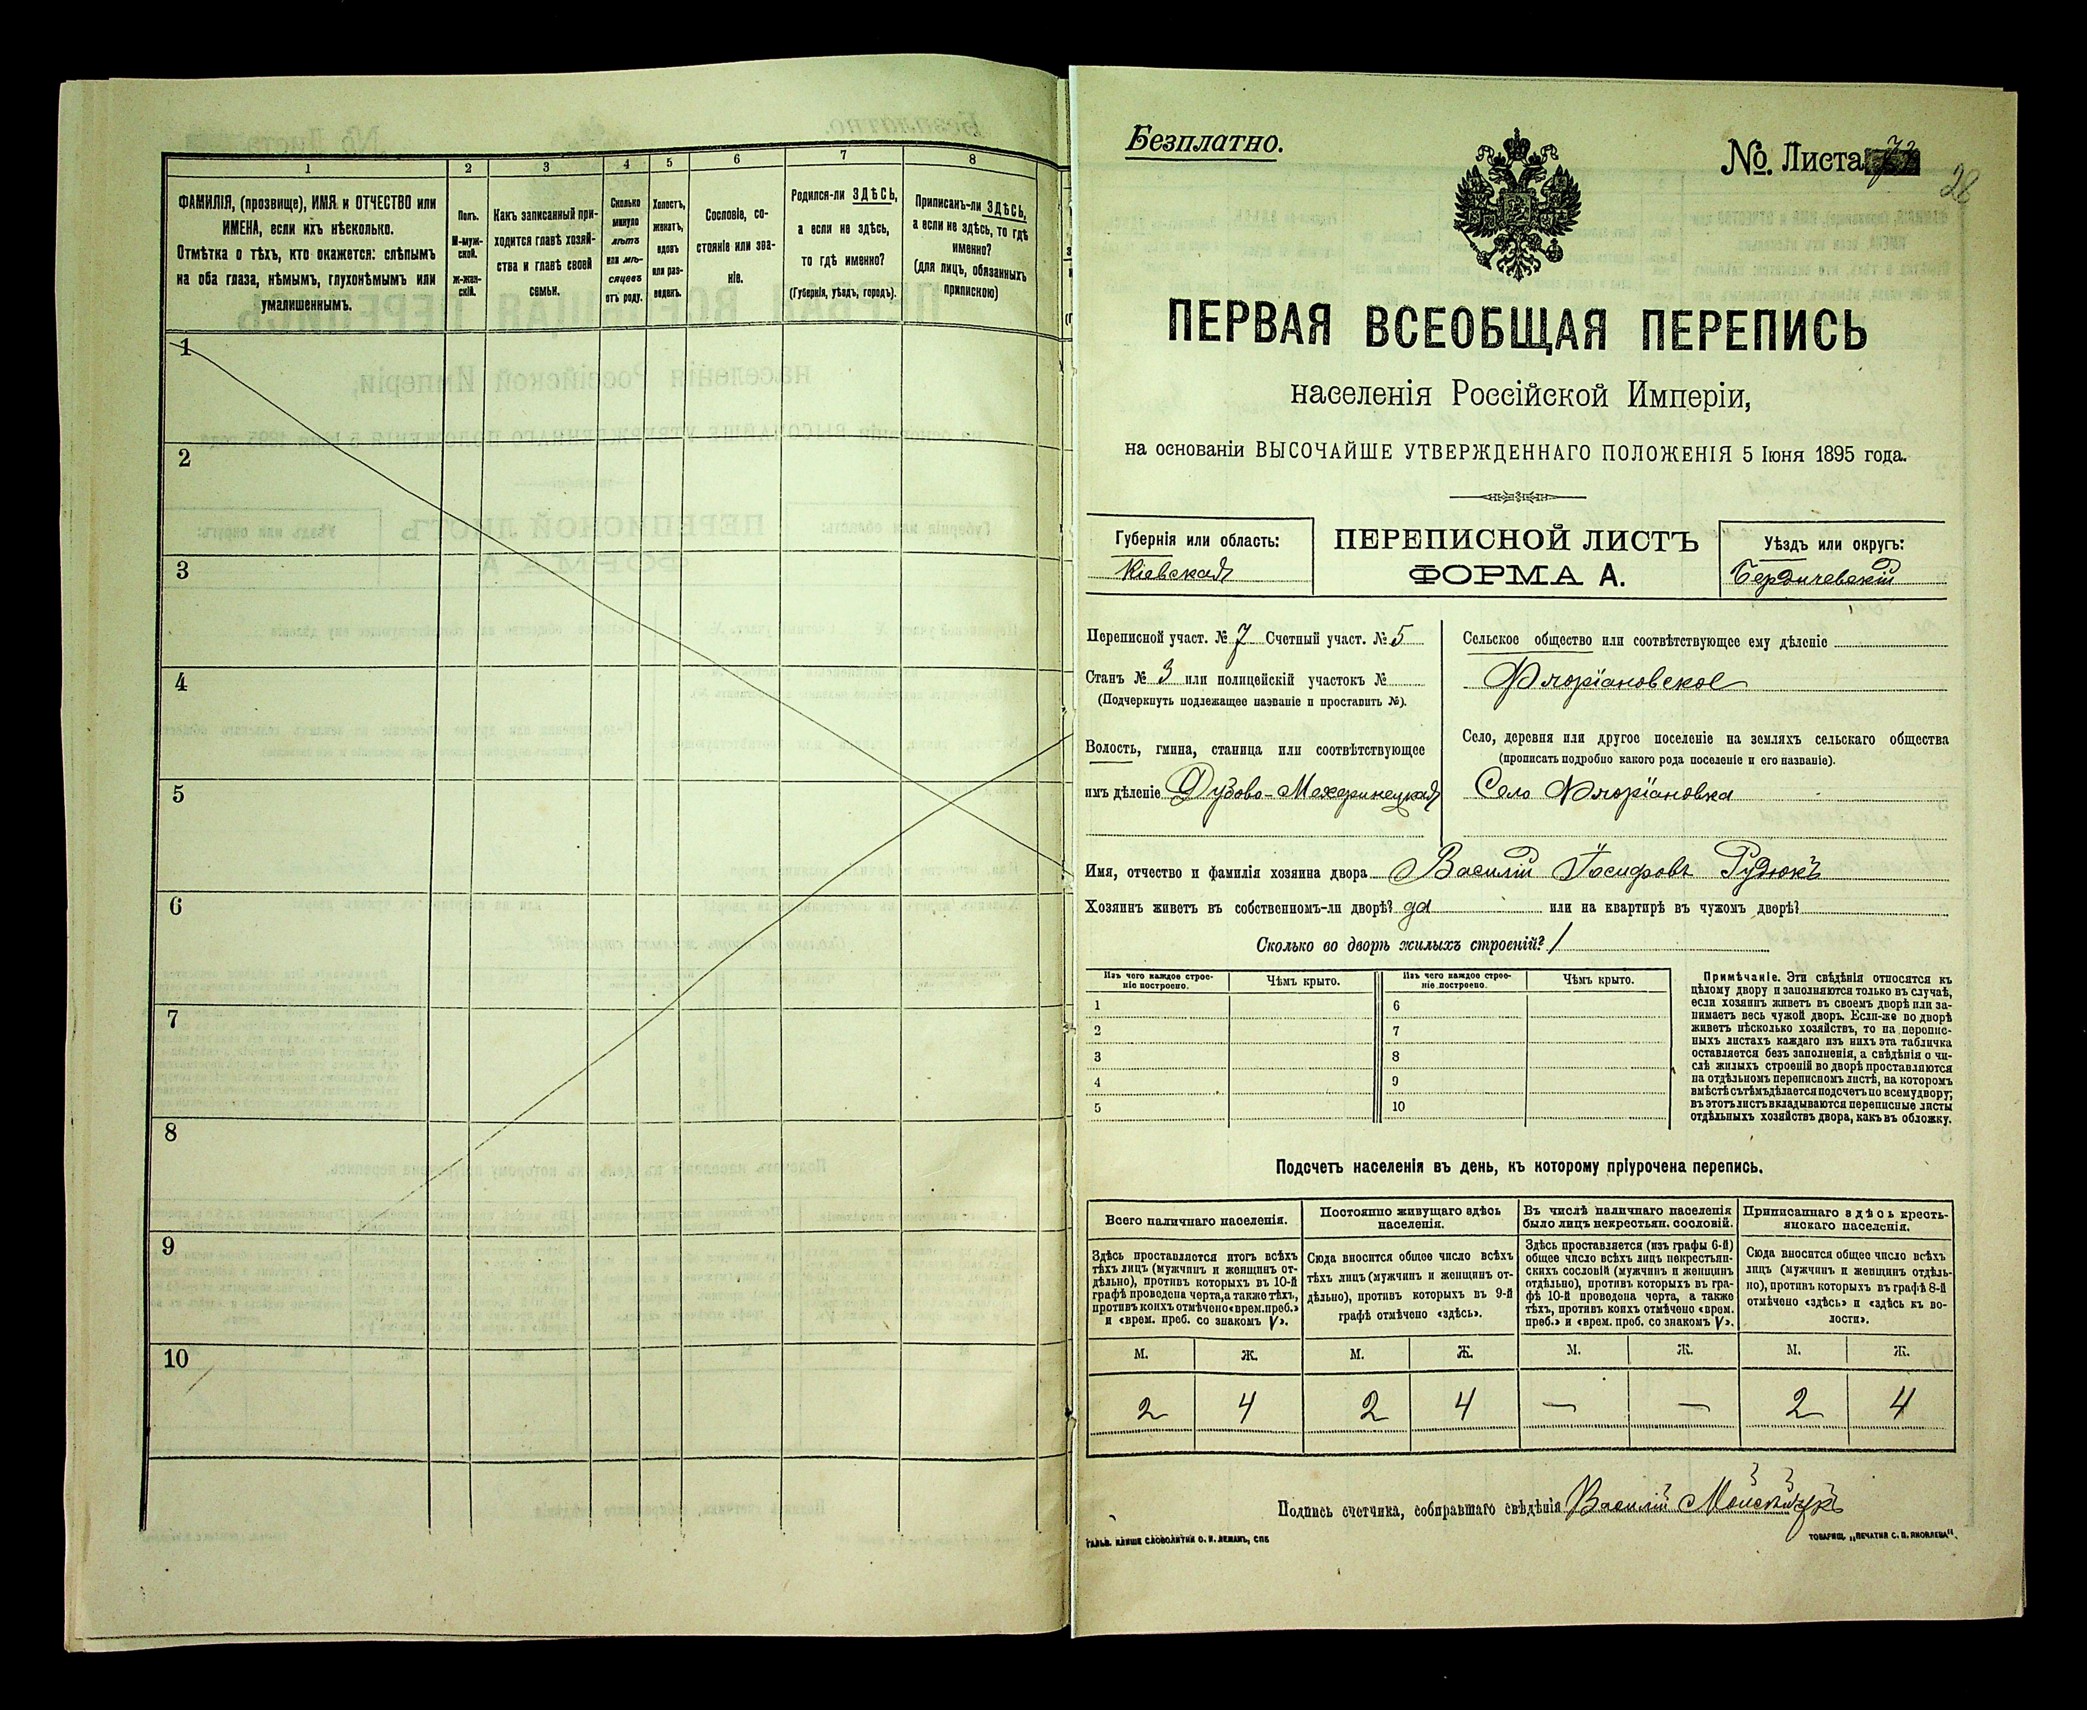 1
2
3
4
5
6
7
8
ФАМИЛІЯ, (прозвище), ИМЯ и ОТЧЕСТВО или
ИМЕНА, если ихъ нѣсколько.
Отмѣтка о тѣхъ, кто окажется: слѣпымъ
на оба глаза, нѣмымъ, глухонѣмымъ или
умалишеннымъ.
Полъ.
М-муж-
ской.
Ж-жен-
скій.
Какъ записанный при-
ходится главѣ хозяй-
ства и главѣ своей
семьи.
Сколько
минуло
лѣтъ
или мѣ-
сяцевъ
отъ роду.
Холостъ,
женатъ,
вдовъ
или раз-
веденъ.
Сословіе, со-
стояніе или зва-
ніе.
Родился-ли ЗДѢСЬ,
а если не здѣсь,
то гдѣ именно?
(Губернія, уѣздъ, городъ).
Приписанъ-ли ЗДѢСЬ,
а если не здѣсь, то гдѣ
именно?
(для лицъ, обязанныхъ
припискою)
1
2
3
4
5
6
7
8
9
10
Безплатно.
№. Листа
28
ПЕРВАЯ ВСЕОБЩАЯ ПЕРЕПИСЬ
населенія Россійской Имперіи,
на основаніи ВЫСОЧАЙШЕ УТВЕРЖДЕННАГО ПОЛОЖЕНІЯ 5 Іюня 1895 года.
Губернія или область:
Кіевская
ПЕРЕПИСНОЙ ЛИСТЪ
ФОРМА А.
Уѣздъ или округъ:
Бердичевскій
Переписной участ. № 7 Счетный участ. № 5
Станъ № 3 или полицейскій участокъ №
(Подчеркнуть подлежащее названіе и проставить №).
Волость, гмина, станица или соотвѣтствующее
имъ дѣленіе Дубово-Махаринецкая
Сельское общество или соотвѣтствующее ему дѣленіе
Флоріановское
Село, деревня или другое поселеніе на земляхъ сельскаго общества
(прописать подробно какого рода поселеніе и его названіе).
Село Флоріановка
Имя, отчество и фамилія хозяина двора Василій Іосифовъ Рудюкъ
Хозяинъ живетъ въ собственномъ-ли дворѣ? да или на квартирѣ въ чужомъ дворѣ?
Сколько во дворѣ жилыхъ строеній? 1
Изъ чего каждое строе-
ніе построено.
Чѣмъ крыто.
Изъ чего каждое строе-
ніе построено.
Чѣмъ крыто.
1
6
2
7
3
8
4
9
5
10
Примѣчаніе. Эти свѣдѣнія относятся къ
цѣлому двору и заполняются только въ случаѣ,
если хозяинъ живетъ въ своемъ дворѣ или за-
нимаетъ весь чужой дворъ. Если-же во дворѣ
живетъ нѣсколько хозяйствъ, то на перепис-
ныхъ листахъ каждаго изъ нихъ эта табличка
оставляется безъ заполненія, а свѣдѣнія о чи-
слѣ жилыхъ строеній во дворѣ проставляются
на отдѣльномъ переписномъ листѣ, на которомъ
вмѣстѣ съ тѣмъ дѣлается подсчетъ по всему двору;
въ этотъ листъ вкладываются переписные листы
отдѣльныхъ хозяйствъ двора, какъ въ обложку.
Подсчетъ населенія въ день, къ которому пріурочена перепись.
Всего наличнаго населенія.
Постоянно живущаго здѣсь
населенія.
Въ числѣ наличнаго населенія
было лицъ некрестьян. сословій.
Приписаннаго здѣсь кресть-
янскаго населенія.
Здѣсь проставляется итогъ всѣхъ
тѣхъ лицъ (мужчинъ и женщинъ от-
дѣльно), противъ которыхъ въ 10-й
графѣ проведена черта, а также тѣхъ,
противъ коихъ отмѣчено «врем. преб.»
и «врем. преб. со знакомъ V».
Сюда вносится общее число всѣхъ
тѣхъ лицъ (мужчинъ и женщинъ от-
дѣльно), противъ которыхъ въ 9-й
графѣ отмѣчено «здѣсь».
Здѣсь проставляется (изъ графы 6-й)
общее число всѣхъ лицъ некрестьян-
скихъ сословій (мужчинъ и женщинъ
отдѣльно), противъ которыхъ въ гра-
фѣ 10-й проведена черта, а также
тѣхъ, противъ коихъ отмѣчено «врем.
преб.» и «врем. преб. со знакомъ V».
Сюда вносится общее число всѣхъ
лицъ (мужчинъ и женщинъ отдѣль-
но), противъ которыхъ въ графѣ 8-й
отмѣчено «здѣсь» и «здѣсь къ во-
лости».
М. Ж. М. Ж. М. Ж. М. Ж.
2 4 2 4 — — 2 4
Подпись счетчика, собиравшаго свѣдѣнія Василій
ГАЛЬВ. КЛИШЕ СЛОВОЛИТНИ О. И. ЛЕМАНЪ, СПБ
ТОВАРИЩ. „ПЕЧАТНЯ С. П. ЯКОВЛЕВА".